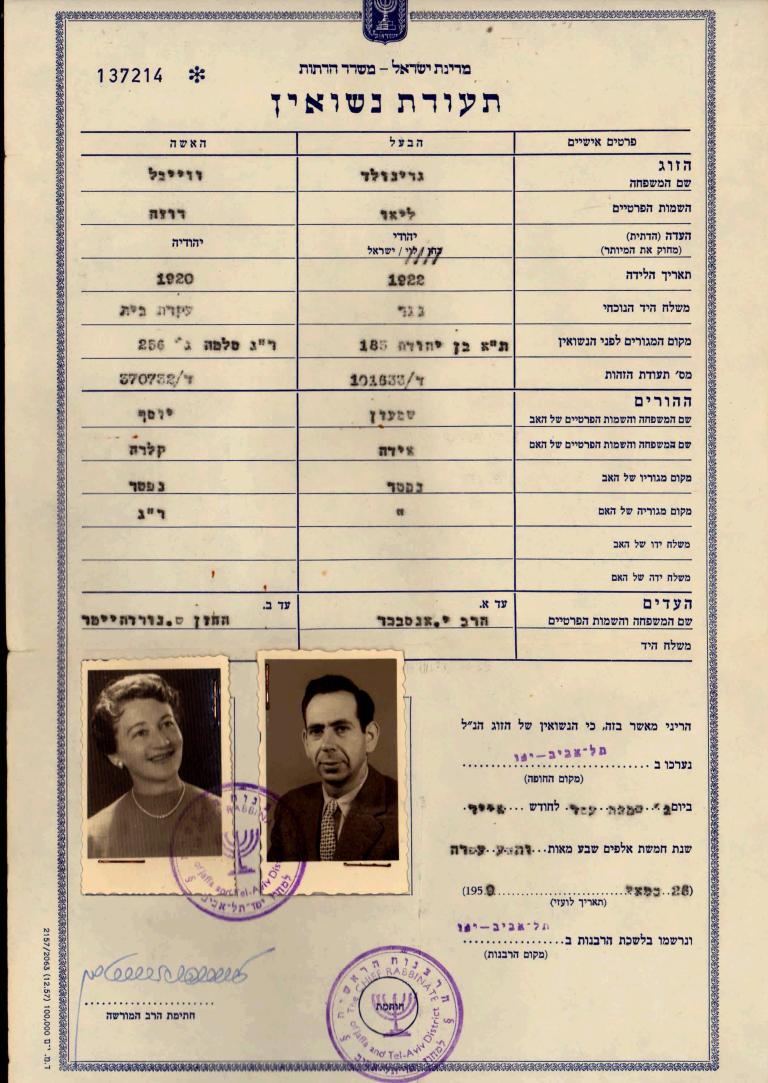 137214 *
מדינת ישראל – משרד הדתות
תעודת נשואין
פרטים אישיים הבעל האשה
הזוג
שם המשפחה גרינולד ווייכל
השמות הפרטיים ליאו רוזה
העדה (הדתית) יהודי יהודיה
(מחוק את המיותר) כהן / לוי / ישראל
תאריך הלידה 1922 1920
משלח היד הנוכחי נגר עקרת בית
מקום המגורים לפני הנשואין ת"א בן יהודה 185 ר"ג סלמה ג' 256
מס' תעודת הזהות ד/101633 ד/370732
ההורים
שם המשפחה והשמות הפרטיים של האב שמעון יוסף
שם המשפחה והשמות הפרטיים של האם אידה קלרה
מקום מגוריו של האב נפטר נפטר
מקום מגוריה של האם " ר"ג
משלח ידו של האב
משלח ידה של האם
העדים עד א. עד ב.
שם המשפחה והשמות הפרטיים הרב י.אנסבכר החזן ש.נורדהיימר
משלח היד
הריני מאשר בזה, כי הנשואין של הזוג הנ"ל
נערכו ב תל-אביב-יפו
(מקום החופה)
ביום ב' שמנה עשר לחודש אייר
שנת חמשת אלפים שבע מאות ותשע עשרה
(26 במאי 1959)
(תאריך לועזי)
ונרשמו בלשכת הרבנות ב תל-אביב-יפו
(מקום הרבנות)
חתימת הרב המורשה
חותמת
הרבנות הראשית
The CHIEF RABBINATE
of Jaffa and Tel-Aviv District
למחוז יפו-תל-אביב
2157/2063 (12.57) 100,000